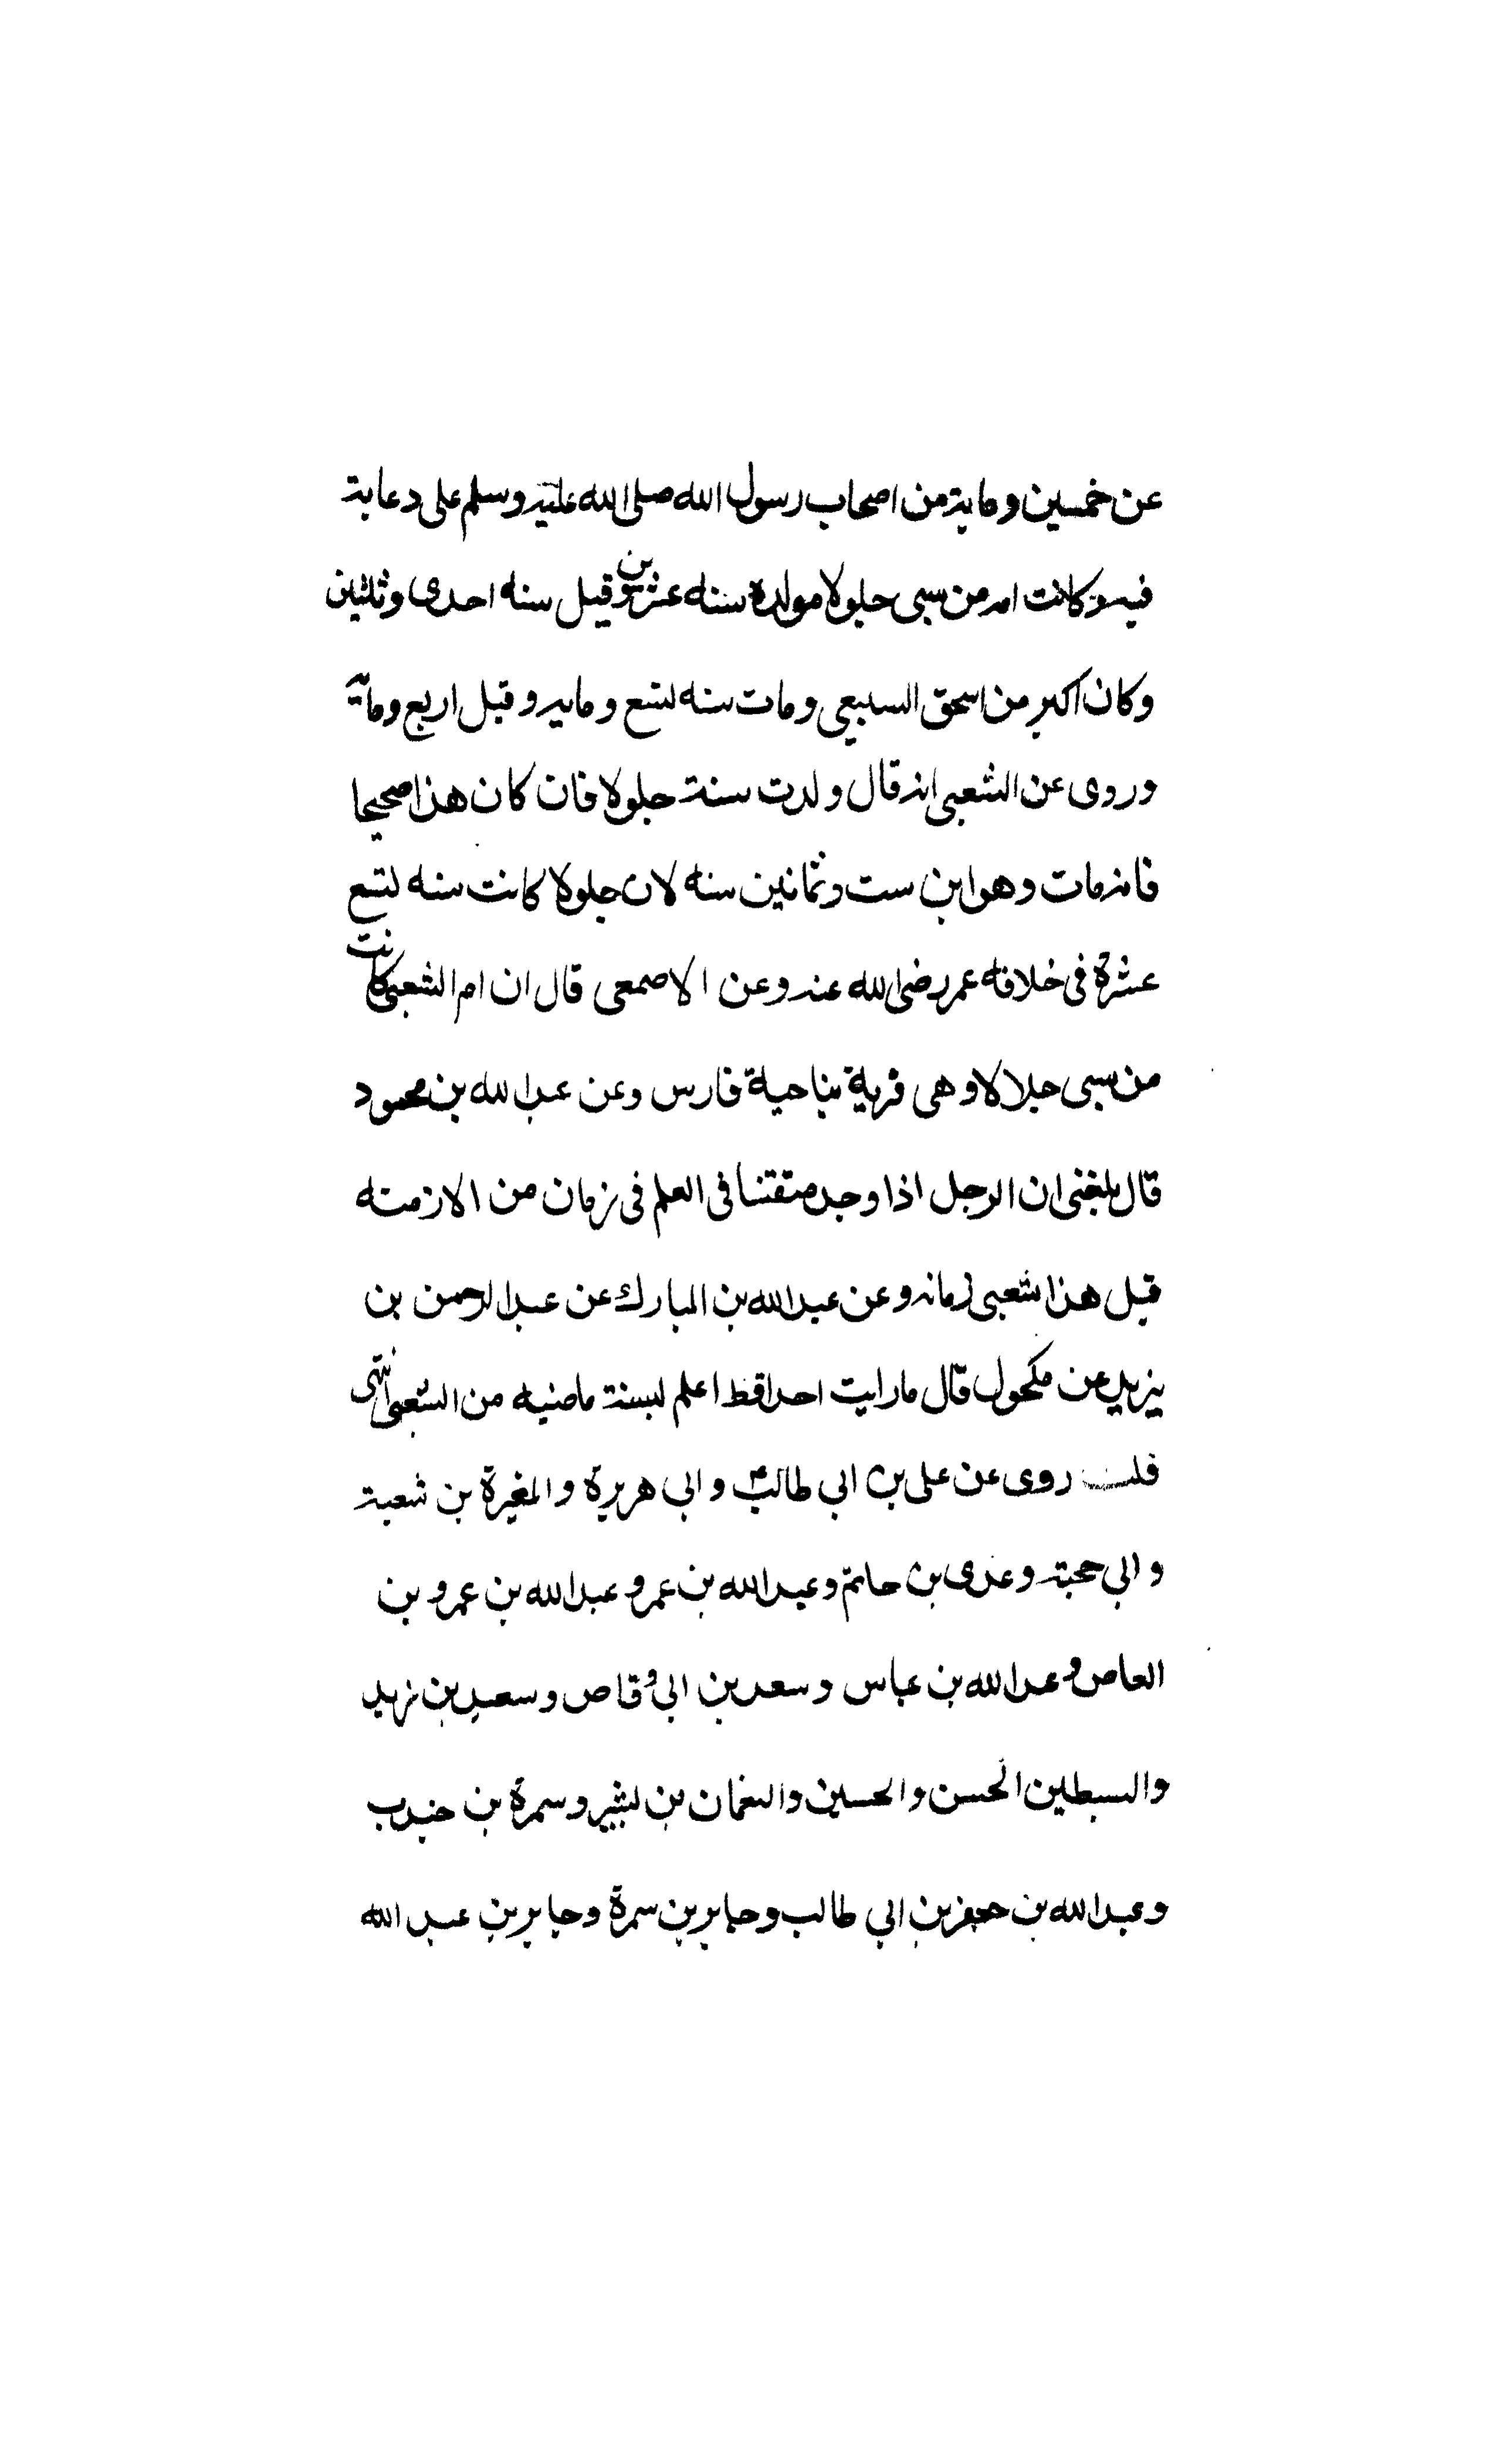 عن خمسين وماية من اصحاب رسول الله صلى الله عليه وسلم على دعابة
فيه وكانت امه من سبى جلولا مولده سنه عشرين وقيل سنه احدى وثلثين
وكان اكبر من اسحق السبيعى ومات سنه لتسع ومايه وقبل اربع وماية
وروى عن الشعبى انه قال ولدت سنة جلولا فان كان هذا صحيحا
فانه مات وهو ابن ست وثمانين سنه لان جلولا كانت سنه لتسع
عشرة فى خلافه عمر رضى الله عنه وعن الاصمعى قال ان ام الشعبى كانت
من سبى جلالا وهى قرية بناحية فارس وعن عبد الله بن محمود
قال بلغنى ان الرجل اذا وجد متقنا فى العلم فى زمان من الازمنه
قيل هذا شعبى زمانه وعن عبد الله بن المبارك عن عبد الرحمن بن
يزيد عن مكحول قال ما رايت احدا قط اعلم لبسنة ماضيه من الشعبى انتهى
قلت روى عن على بن ابي طالب و ابي هريرة والمغيرة بن شعبة
و ابي حجبة وعدى بن حاتم وعبد الله بن عمر و عبد الله بن عمرو بن
العاص وعبد الله بن عباس و سعد بن ابي وقاص و سعيد بن زيد
والسبطين الحسن والحسين والنعمان بن بشير وسمرة بن جندب
وعبد الله بن جعفر بن ابي طالب وجابر بن سمرة وجابر بن عبد الله